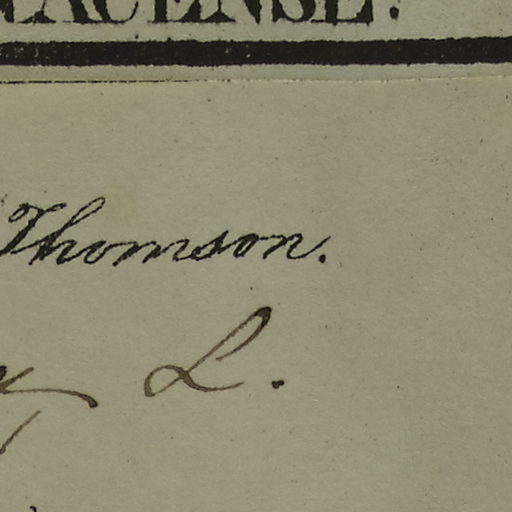 LACUENSE.
Thomson.
L.